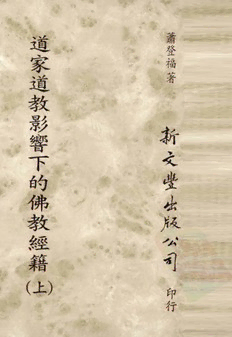 蕭登福著
道家道教影響下的佛教經籍(上)
新文豐出版公司
印行